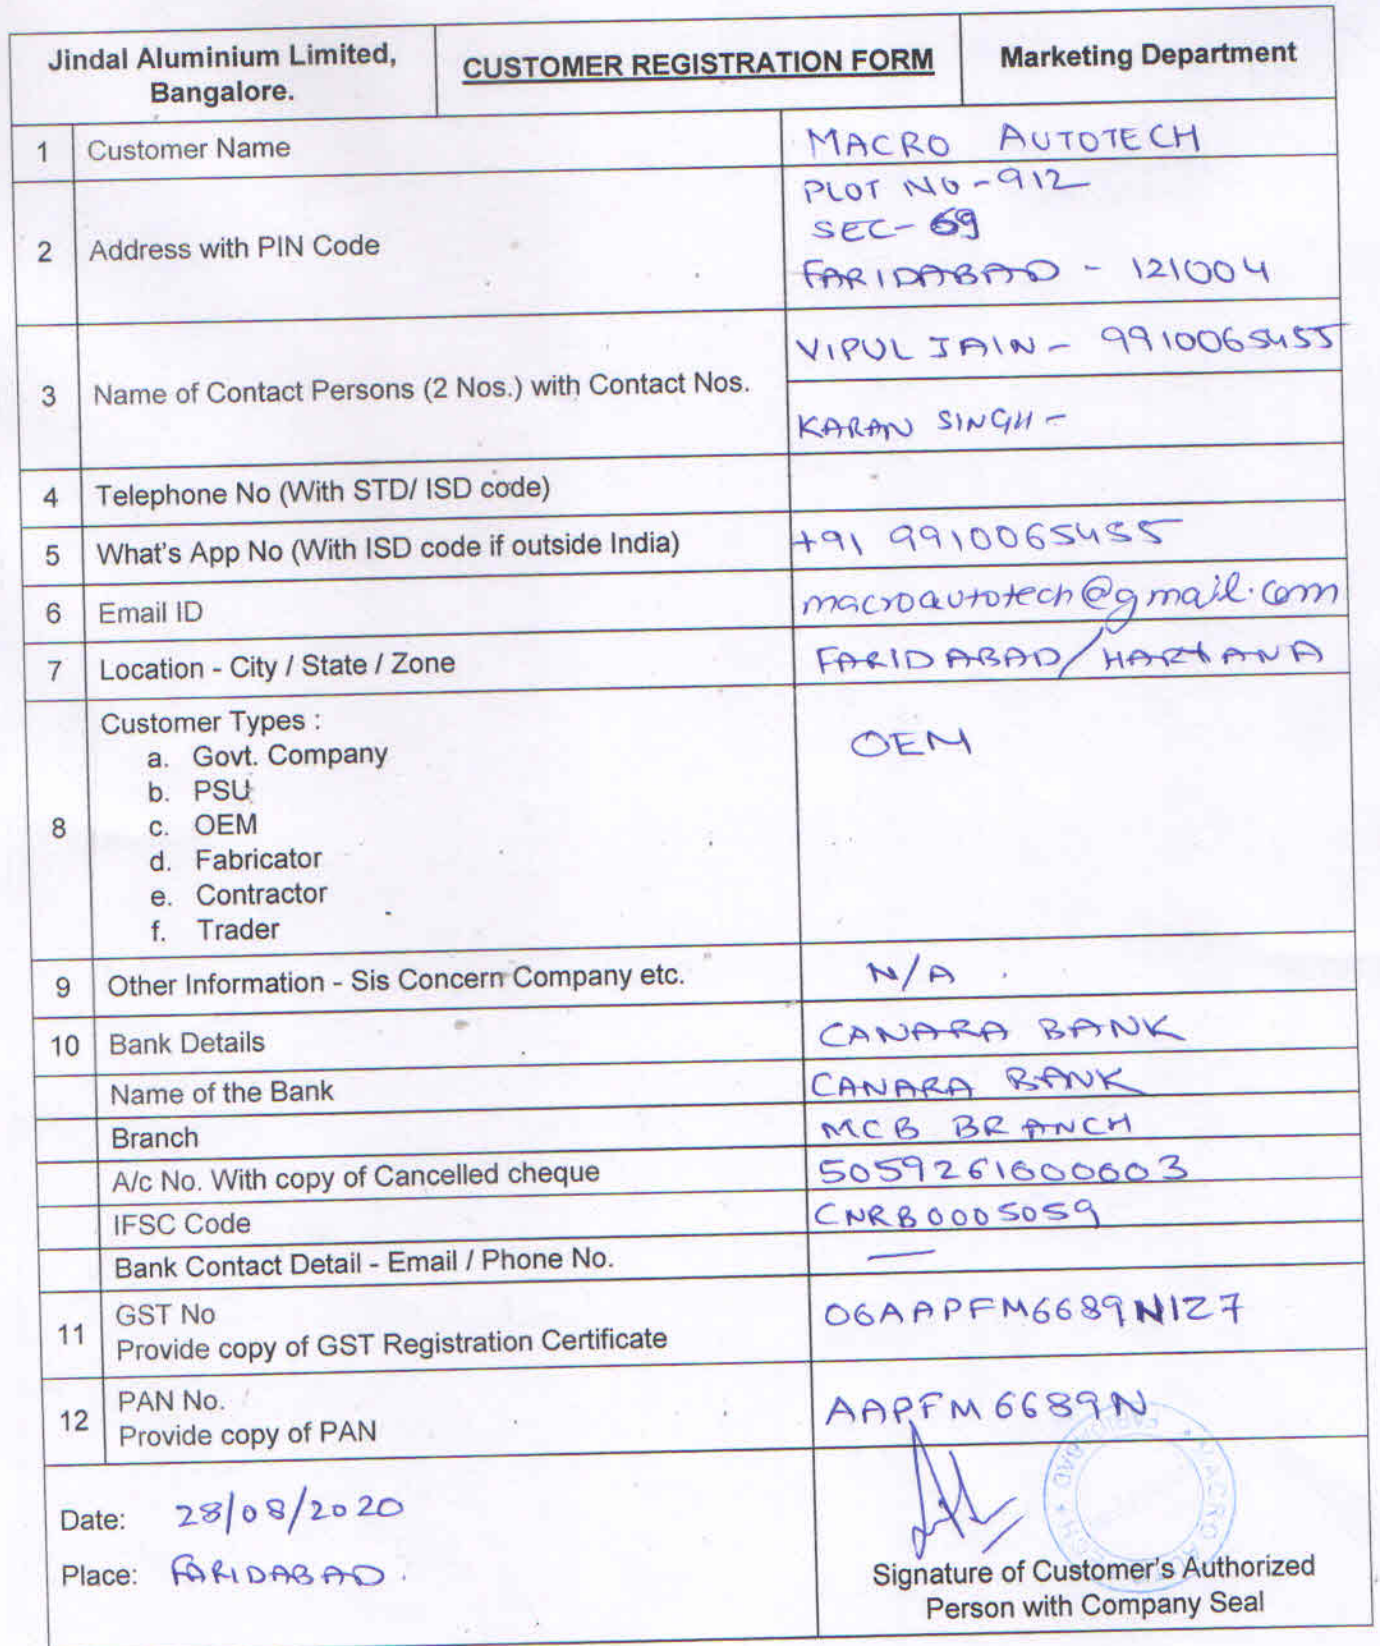 Jindal Aluminium Limited,
Bangalore.
CUSTOMER REGISTRATION FORM
Marketing Department
1 Customer Name MACRO AUTOTECH
2 Address with PIN Code
PLOT NO-912
SEC-69
FARIDABAD - 121004
3 Name of Contact Persons (2 Nos.) with Contact Nos.
VIPUL JAIN - 9910065455
KARAN SINGH -
4 Telephone No (With STD/ ISD code)
5 What's App No (With ISD code if outside India) +91 9910065455
6 Email ID macroautotech@gmail.com
7 Location - City / State / Zone FARIDABAD/HARYANA
8 Customer Types : OEM
a. Govt. Company
b. PSU
c. OEM
d. Fabricator
e. Contractor
f. Trader
9 Other Information - Sis Concern Company etc. N/A
10 Bank Details CANARA BANK
Name of the Bank CANARA BANK
Branch MCB BRANCH
A/c No. With copy of Cancelled cheque 5059261000603
IFSC Code CNRB0005059
Bank Contact Detail - Email / Phone No. —
11 GST No
Provide copy of GST Registration Certificate
06AAPFM6689N1Z7
12 PAN No.
Provide copy of PAN
AAPFM6689N
Date: 28/08/2020
Place: FARIDABAD.
MACRO AUTOTECH * FARIDABAD *
Signature of Customer's Authorized
Person with Company Seal